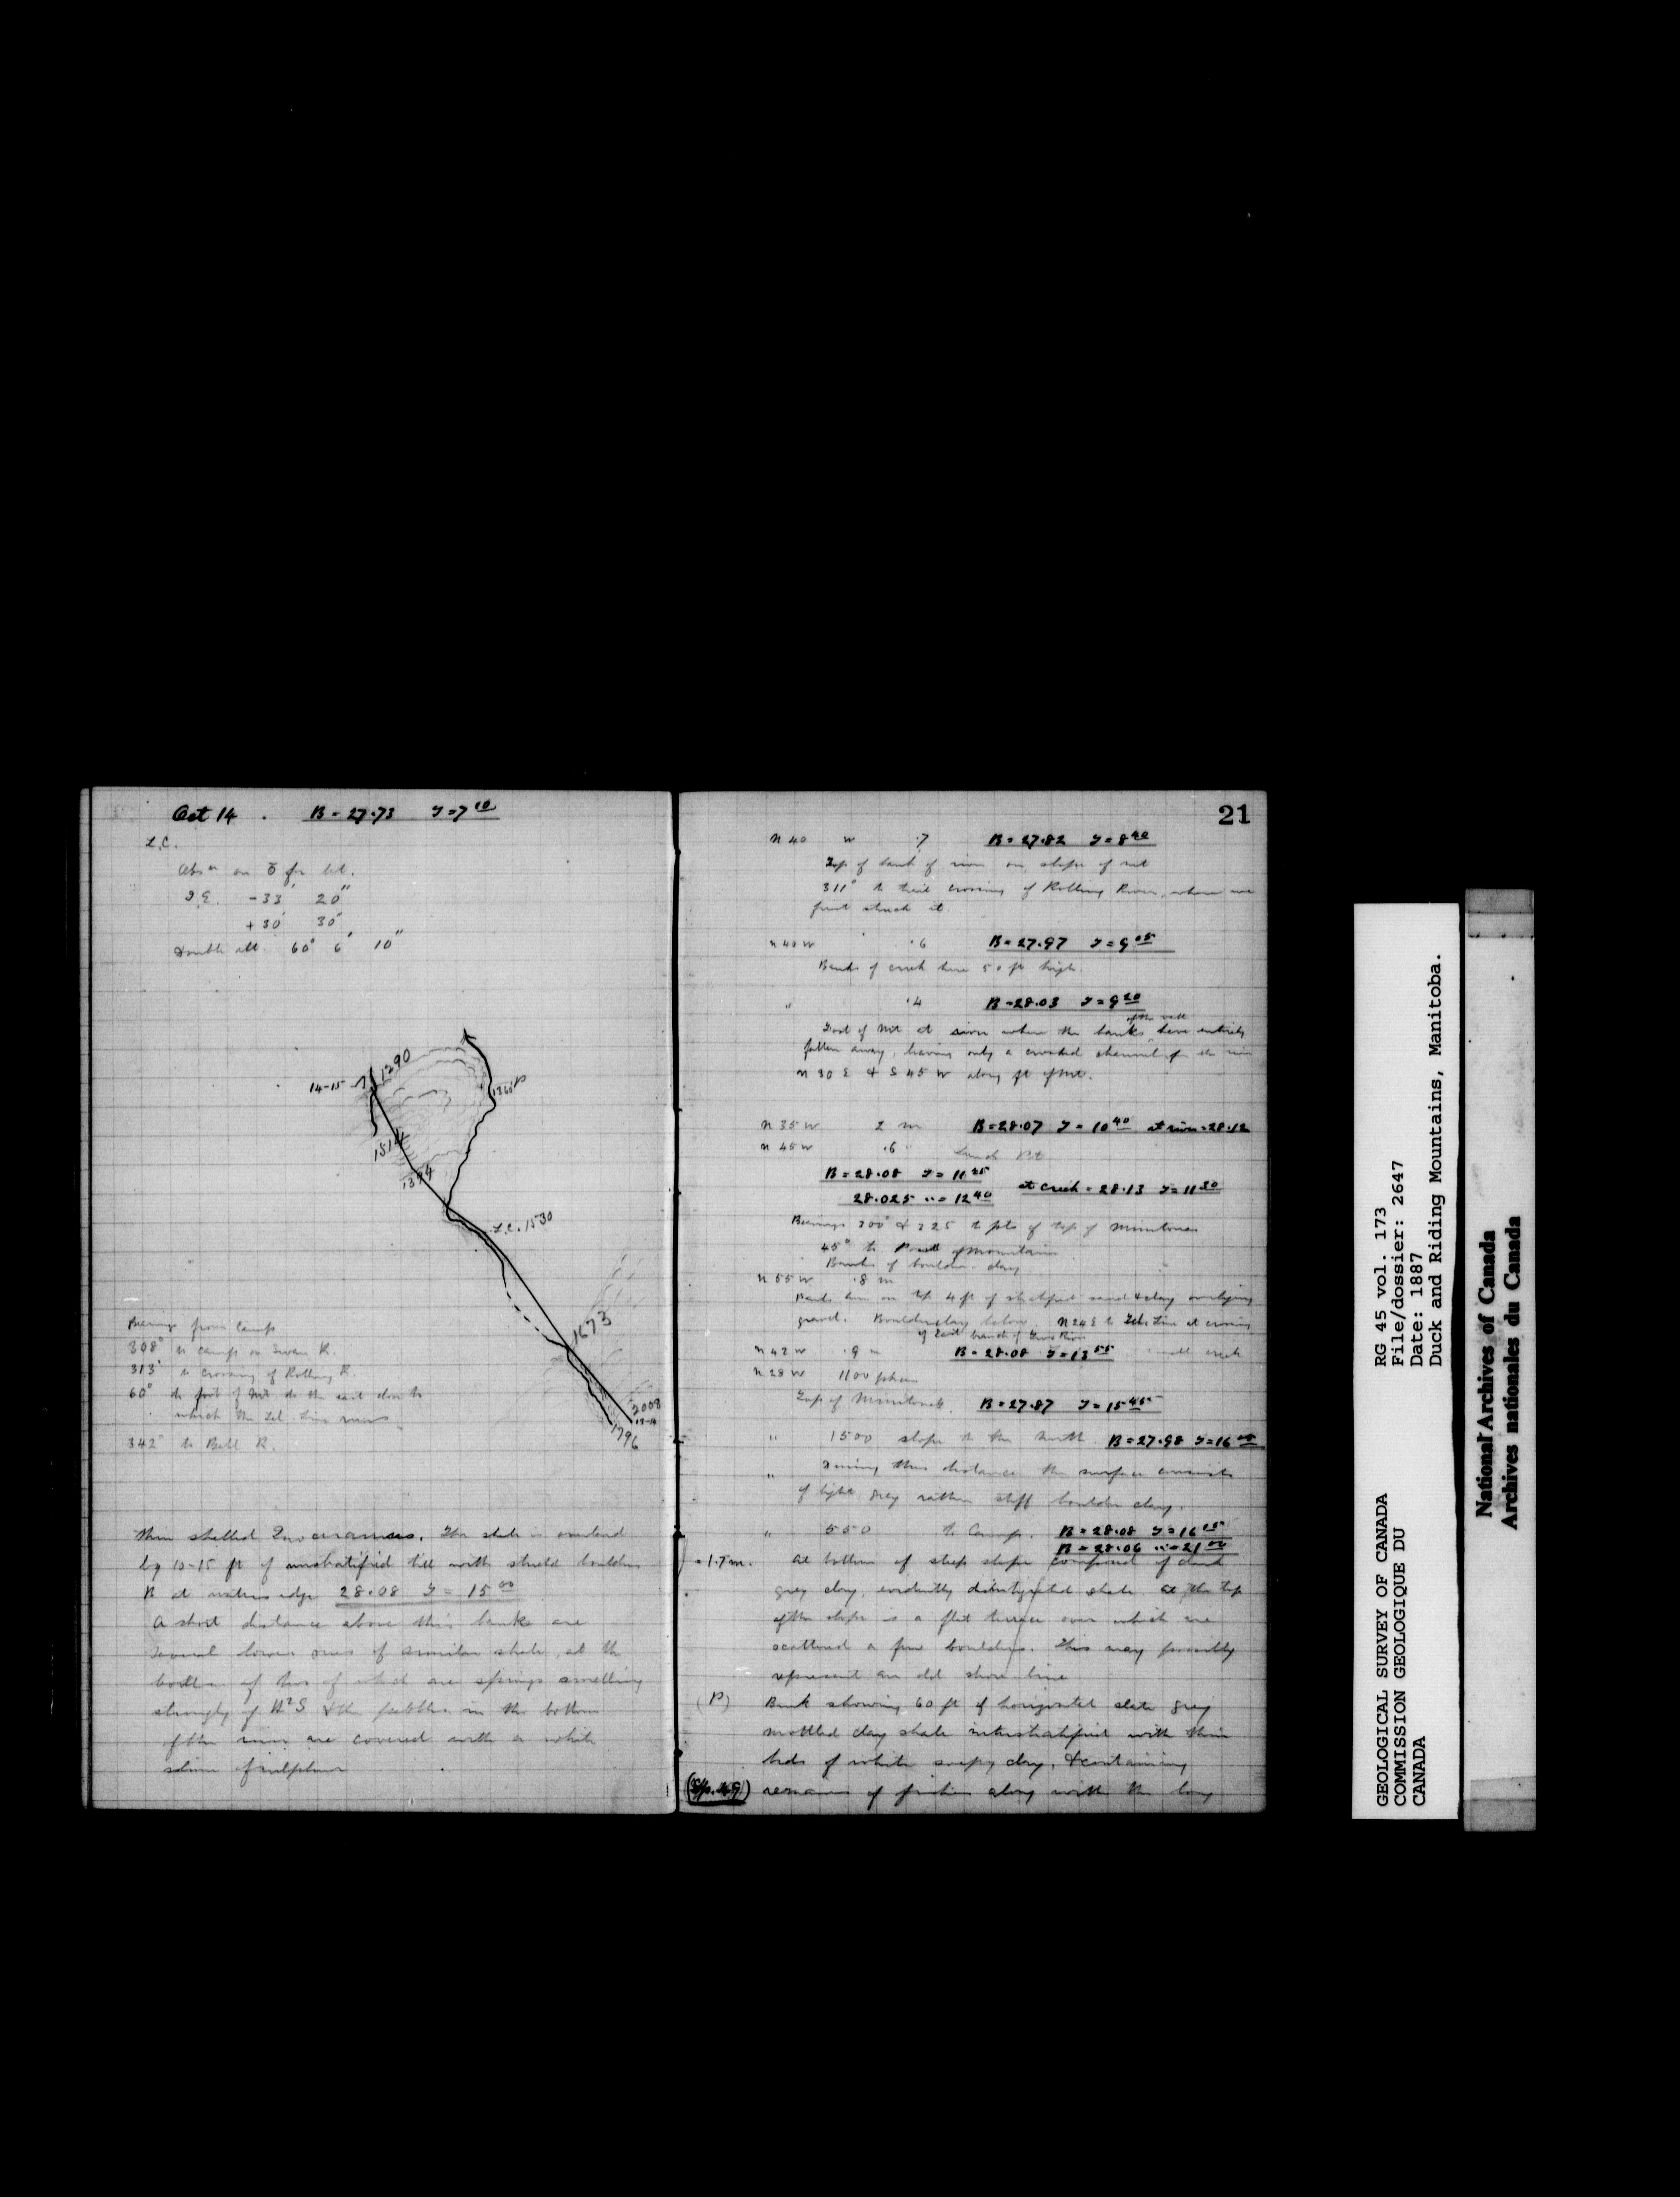 Oct 14 . B = 27.73 T = 7 10
L.C.
Obsn on for lat.
I.E. -33' 20"
+30' 30"
Double alt. 60° 6' 10"
1290
14-15
1360 P
1514
1394
L.C. 1530
1673
2008
13-14
1796
Bearings from Camp
308° to camp on Swan R.
313° to crossing of Rolling R.
60° to foot of Mt to the east close to
which the Tel. Line runs
342° to Bell R.
thin shelled Inoceramus. The shale is overlaid
by 10-15 ft of unstratified till with striated boulders
B at waters edge 28.08 T = 15 00
A short distance above this bank are
several lower ones of similar shale, at the
bottom of two of which are springs smelling
strongly of H2S & the pebbles in the bottom
of the river are covered with a white
slime of sulphur
21
N 40 W .7 B = 27.82 T = 8 40
Top of bank of river on slope of mt
311° to trail crossing of Rolling River, where we
first struck it.
N 40 W .6 B = 27.97 T = 9 05
Banks of creek here 50 ft high.
" .4 B = 28.03 T = 9 20
of the vall
Foot of Mt at river where the banks have entirely
fallen away, leaving only a crooked channel for the river
N 30 E & S 45 W along ft of Mt.
N 35 W 2 m B = 28.07 T = 10 40 at river = 28.12
N 45 W .6 Lunch Pt
B = 28.08 T = 11 25
at creek = 28.13 T = 11 30
28.025 " = 12 40
Bearings 300° & 325 to pts of top of Minitonas
45° to Point of Mountain
Banks of boulder clay
N 55 W .8 m
Banks here on top 4 ft of stratified sand & clay overlying
gravel. Boulder clay below. N 24 E to Tel. Line at crossing
of East branch of River
N 42 W .9 m B = 28.08 T = 13 55 small creek
N 28 W 1100 paces
Top of Minitonas B = 27.87 T = 15 45
" 1500 slope to the north B = 27.98 T = 16 00
" During this distance the surface consists
of light grey rather stiff boulder clay.
" 550 to Camp. B = 28.08 T = 16 15
B = 28.06 " = 21 00
= 1.7 m. At bottom of steep slope composed of dark
grey clay, evidently disintegrated shale. At the top
of the slope is a flat terrace over which are
scattered a few boulders. This may possibly
represent an old shore line
(P) Bank showing 60 ft of horizontal slate grey
mottled clay shale interstratified with thin
beds of white soapy clay, & containing
(Sp. 169) remains of fishes along with the long
GEOLOGICAL SURVEY OF CANADA
COMMISSION GEOLOGIQUE DU
CANADA
RG 45 vol. 173
File/dossier: 2647
Date: 1887
Duck and Riding Mountains, Manitoba.
National Archives of Canada
Archives nationales du Canada